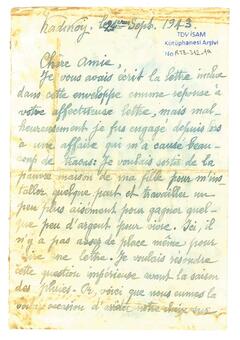 Kadıköy, Sept. 1943
TDV İSAM
Kütüphanesi Arşivi
No RTB-312-14
Chère Amie,
Je vous avais écrit la lettre incluse
dans cette enveloppe comme réponse à
votre affectueuse lettre, mais mal-
heureusement je fus engagé depuis
à une affaire qui m'a causé beau-
coup de tracas: Je voulais sortir de la
pauvre maison de ma fille pour m'ins-
taller quelque part et travailler un
peu plus aisément pour gagner quel-
que peu d'argent pour vivre. Ici, il
n'y a pas assez de place même pour
une lettre. Je voulais resoudre
cette question impérieuse avant la saison
des pluies. Or, voici que nous eumes la
occasion